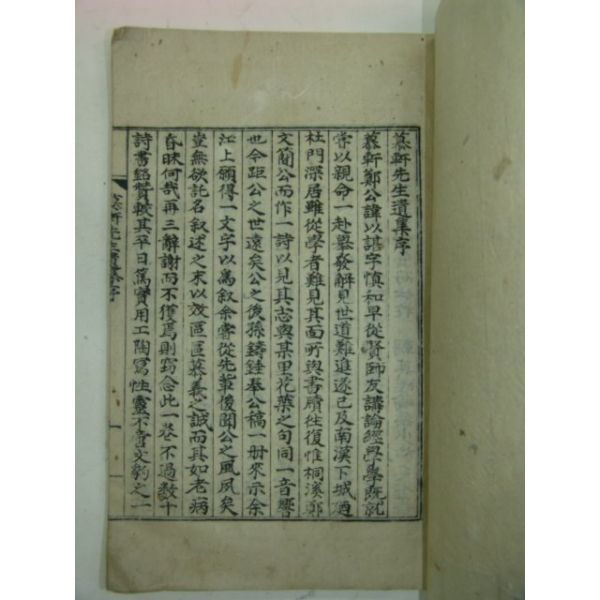 慕軒先生遺集序
慕軒鄭公諱以諶字愼和早從賢師友講論經學學旣就
嘗以親命一赴擧發解見世道難進遂已及南漢下城遯
杜門深居雖從學者難見其面所與書牘往復惟桐溪鄭
文簡公而作一詩以見其志與某里花葉之句同一音響
也今距公之世遠矣公之後孫鑄銈奉公稿一冊來示余
江上願得一文字以爲敘余寄從先輩後聞公之風夙矣
豈無欲託名敘述之末以效區區慕義之誠而其如老病
昏昧何哉再三辭謝而不獲焉則竊念此一卷不過數十
詩書銘贊較其平日篤實用工陶寫性靈不啻文豹之一
慕軒先生遺集序
一